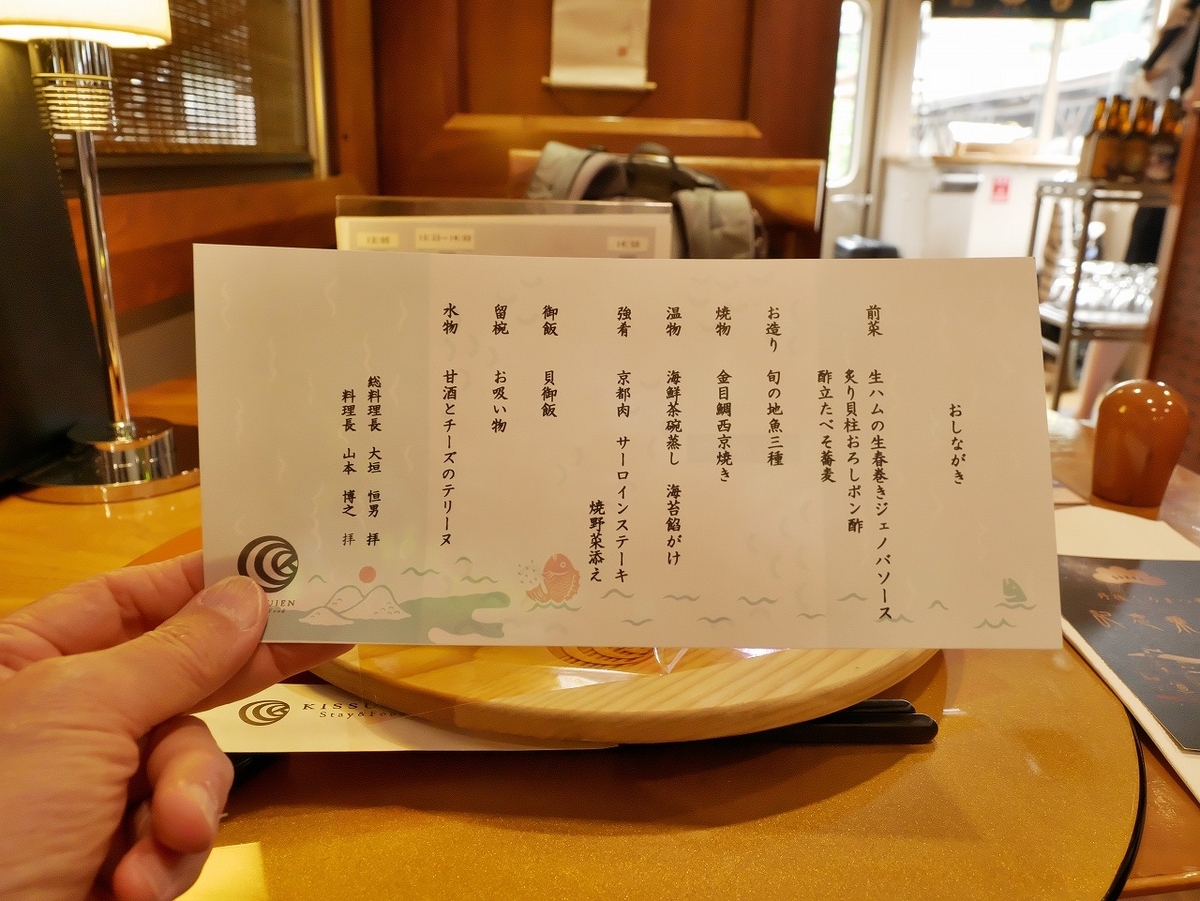 おしながき
前菜 生ハムの生春巻きジェノバソース
炙り貝柱おろしポン酢
酢立たべそ蕎麦
お造り 旬の地魚三種
焼物 金目鯛西京焼き
温物 海鮮茶碗蒸し 海苔餡がけ
強肴 京都肉 サーロインステーキ
焼野菜添え
御飯 貝御飯
留椀 お吸い物
水物 甘酒とチーズのテリーヌ
総料理長 大垣 恒男 拝
料理長 山本 博之 拝
Stay&Food